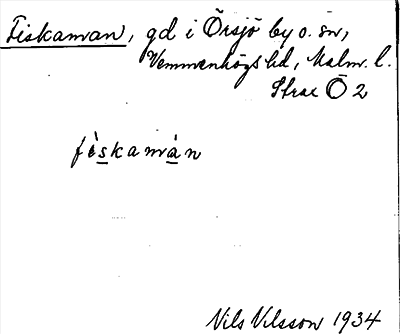 Fiskaman, gd i Örsjö by o. sn,
Vemmenhögs hd, Malm. l.
Skrae Ö 2
fìskamàn
Nils Nilsson 1934